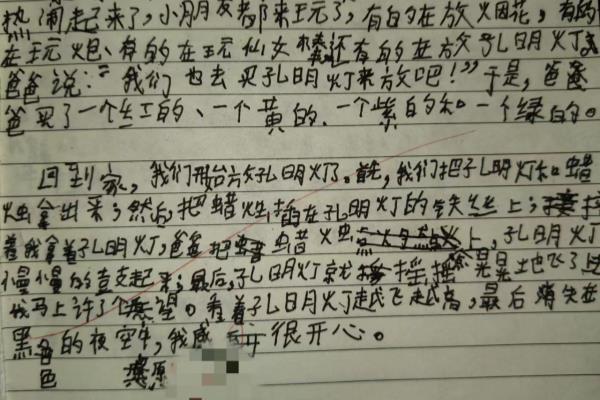 热闹起来了,小朋友都来玩了,有的在放烟花,有的
在玩炮、有的在玩仙女棒还有的在放孔明灯
爸爸说:“我们也去买孔明灯来放吧!”于是,爸爸
爸买了一个红的、一个黄的、一个紫的和一个绿的。
回到家,我们开始放孔明灯了。首先,我们把孔明灯和蜡
烛拿出来;然后把蜡烛插在孔明灯的铁丝上;接
着我拿着孔明灯,爸爸把蜡烛点火上,孔明灯
慢慢的直起来;最后,孔明灯就摇摇晃晃地飞了
我马上许了个愿望。看着孔明灯越飞越高,最后消失在
黑色的夜空中,我感到很开心。
色 愿